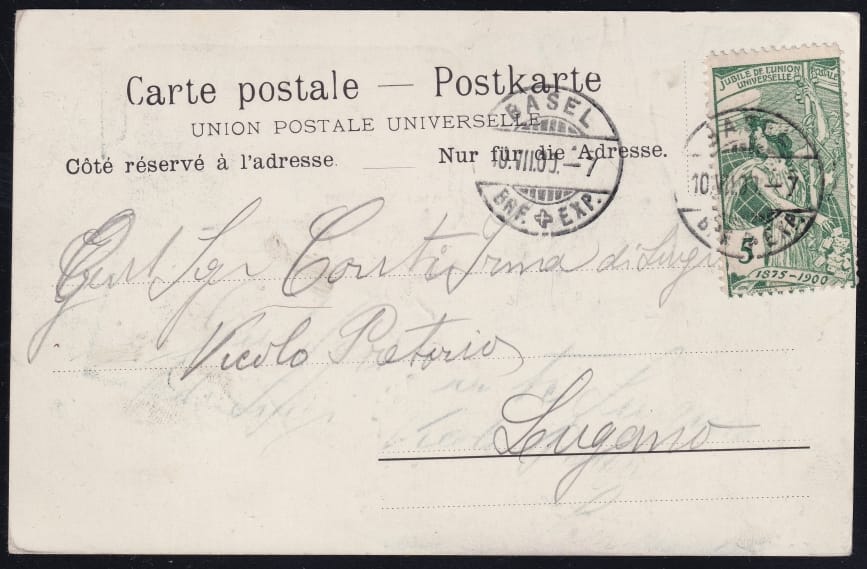 Carte postale — Postkarte
UNION POSTALE UNIVERSELLE
Côté réservé à l'adresse. — Nur für die Adresse.
BASEL
10.VII.00.–7
BRF. EXP.
JUBILÉ DE L'UNION POSTALE
UNIVERSELLE
BASEL
10.VII.00.–7
BRF. EXP.
5
1875–1900
Gent Sgr Conti Irma di Luigi
Vicolo Pretorio
Lugano